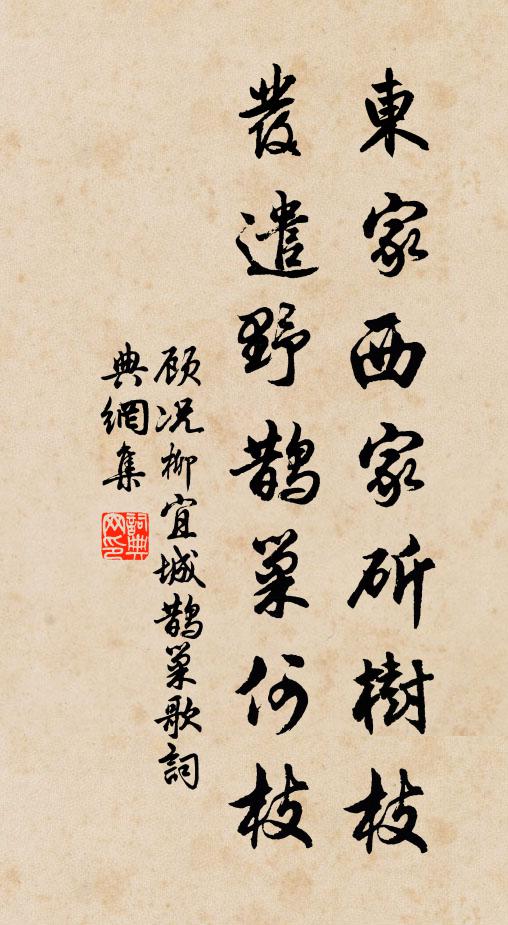 東家西家斫樹枝
發遣野鵲巢何枝
顾况柳宜城鵲巢歌詞
典網集
詞典網印